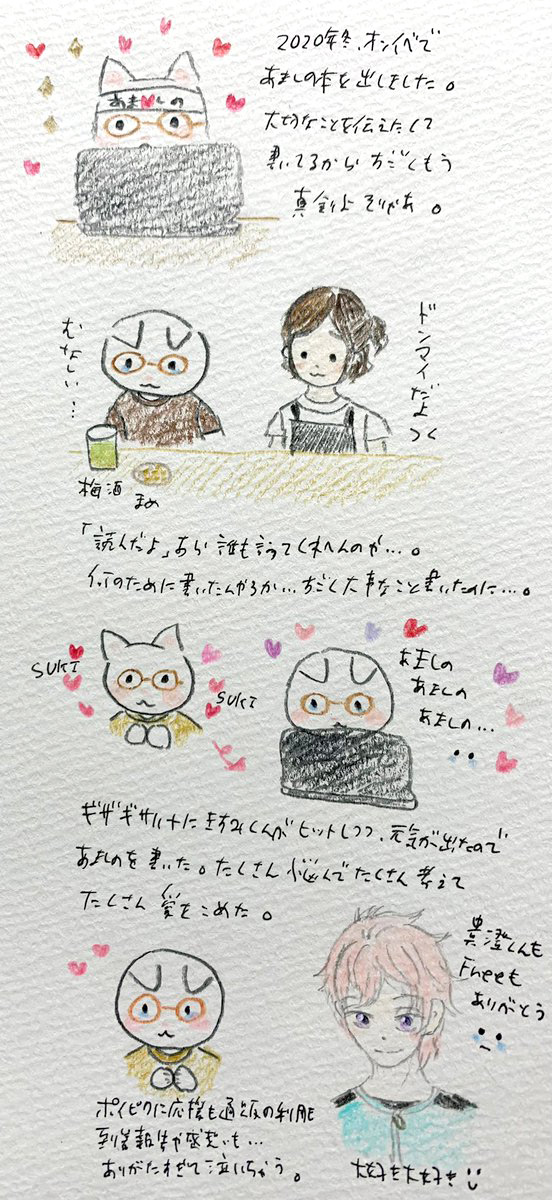 2020年冬、オンイベで
あましの本を出しました。
大切なことを伝えたくて
書いてるから すごくもう
真剣よ そりゃあ。
あま しの
むなしい…
ドンマイだよ
つく
梅酒
まめ
「読んだよ」あら 誰も言うてくれへんのか…。
何のために書いたんやろか…すごく大事なこと書いたのに…。
SUKI
SUKI
あましの
あましの
あましの…
ギザギザハートに ますみくんがヒットしつつ、元気が出たので
あましのを書いた。たくさん悩んで たくさん考えて
たくさん 愛をこめた。
真澄くんも
Freeも
ありがとう
ポイピクに応援も通販の利用
到着報告や感想も…
ありがたすぎて泣いちゃう。
大好き大好き